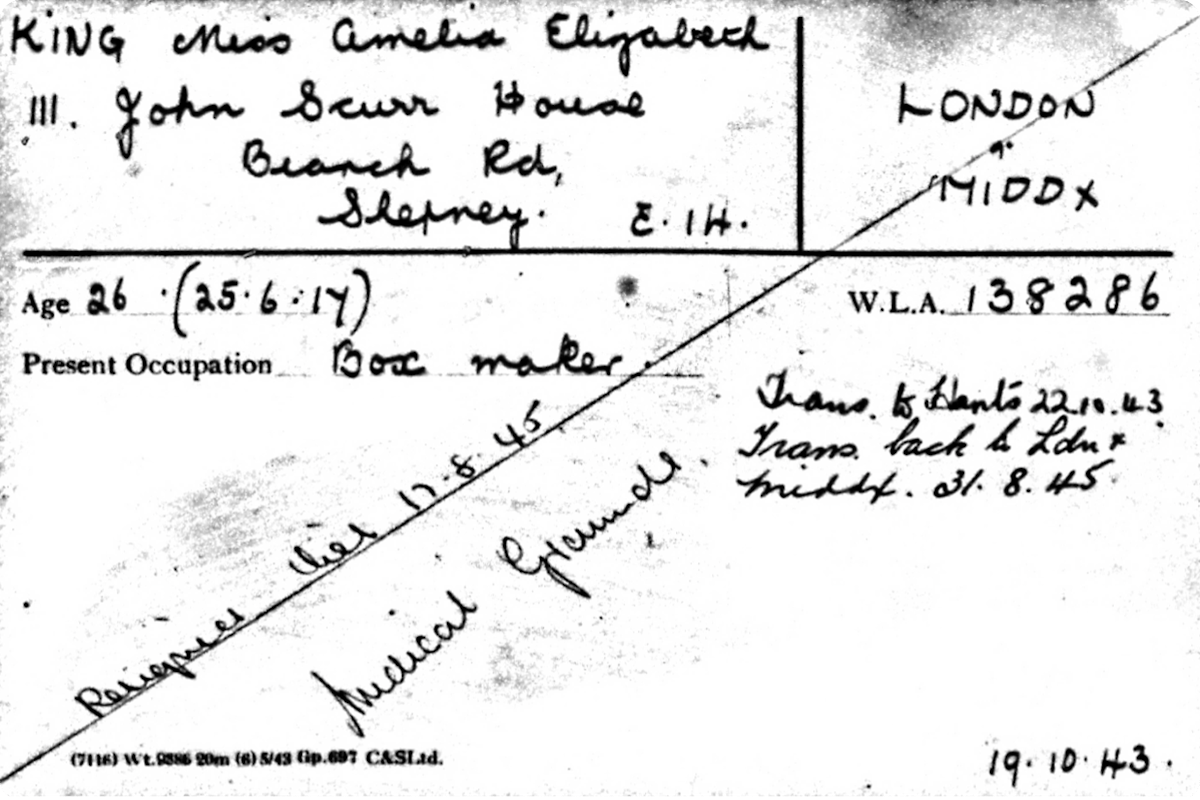 KING Miss Amelia Elizabeth
111. John Scurr House
Branch Rd,
Stepney. E.14.
LONDON
&
MIDDX
Age 26 (25.6.17)
W.L.A. 138286
Present Occupation Box maker.
Trans. to Hants 22.10.43
Trans. back to Ldn &
Middx. 31.8.45
Resigned 17.8.45
Medical Grounds.
(7116) Wt.9386 20m (6) 5/43 Gp.697 C&SLtd.
19.10.43.